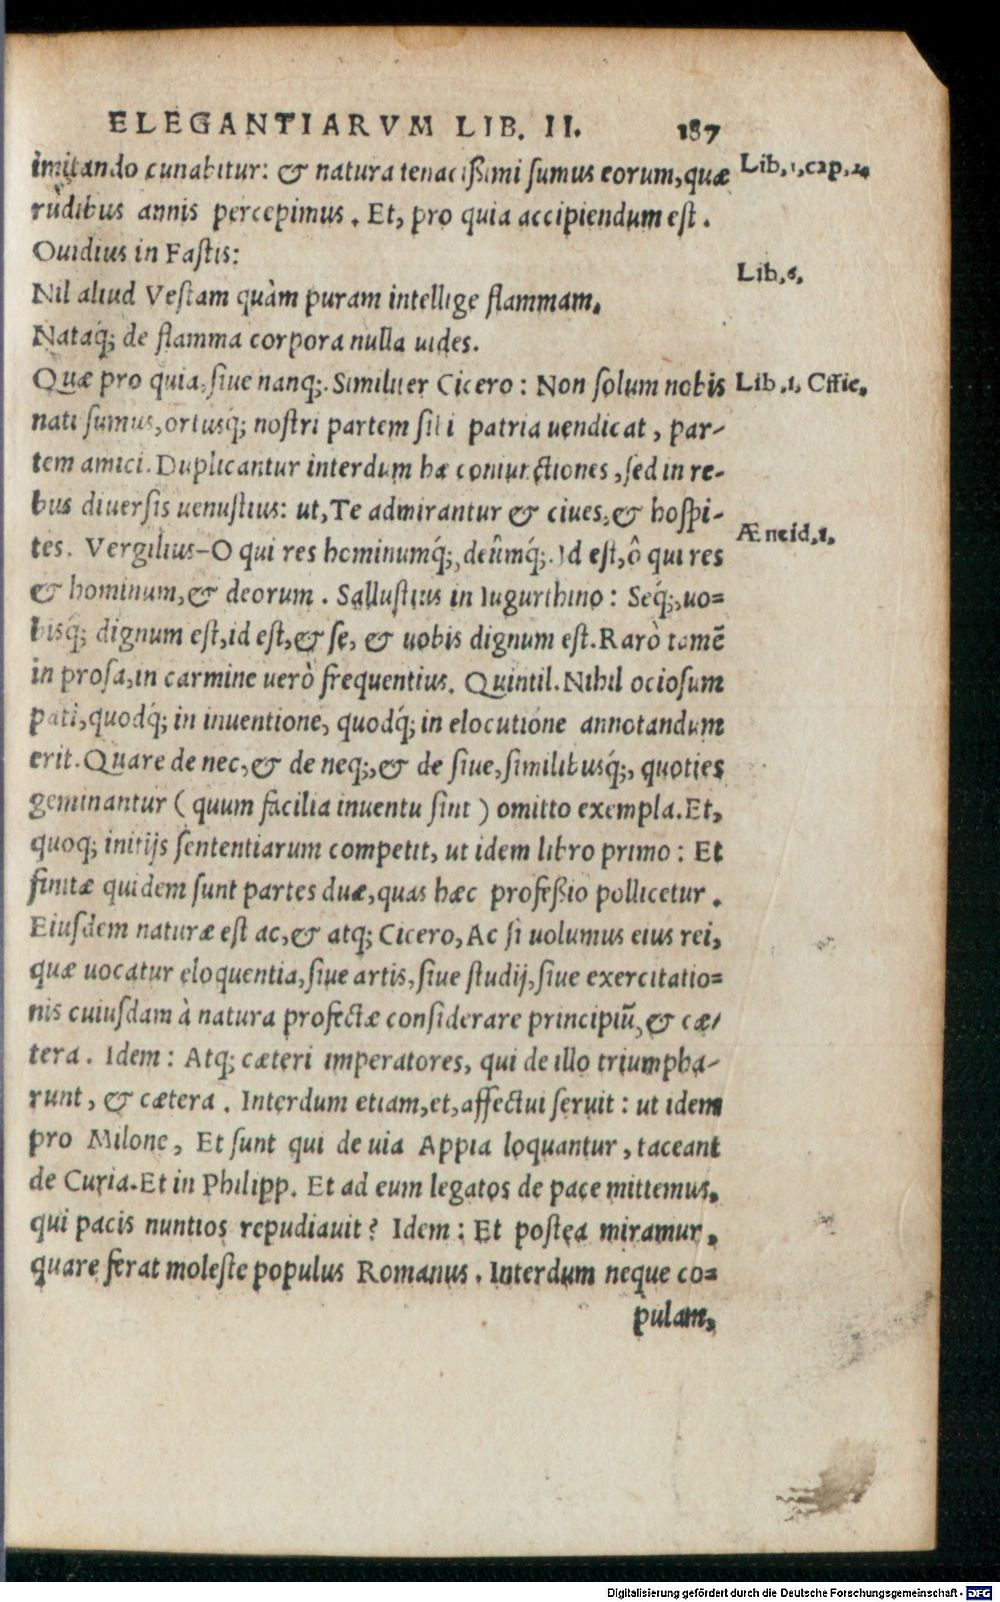 ELEGANTIARVM LIB. II. 187
imitando cunabitur: & natura tenacißimi sumus eorum, quæ
rudibus annis percepimus. Et, pro quia accipiendum est.
Ouidius in Fastis:
Nil aliud Vestam quàm puram intellige flammam,
Nataq́; de flamma corpora nulla uides.
Quæ pro quia, siue nanq;. Similiter Cicero: Non solum nobis
nati sumus, ortusq́; nostri partem sibi patria uendicat, par-
tem amici. Duplicantur interdum hæ coniunctiones, sed in re-
bus diuersis uenustius: ut, Te admirantur & ciues, & hospi-
tes. Vergilius-O qui res hominumq́;, deûmq́;. Id est, ô qui res
& hominum, & deorum. Sallustius in Iugurthino: Seq́;, uo=
bisq́; dignum est, id est, & se, & uobis dignum est. Rarò tamē
in prosa, in carmine uerò frequentius. Quintil. Nihil ociosum
pati, quodq́; in inuentione, quodq́; in elocutione annotandum
erit. Quare de nec, & de neq;, & de siue, similibusq́;, quoties
geminantur (quum facilia inuentu sint) omitto exempla. Et,
quoq; initijs sententiarum competit, ut idem libro primo: Et
finitæ quidem sunt partes duæ, quas hæc profeßio pollicetur.
Eiusdem naturæ est ac, & atq; Cicero, Ac si uolumus eius rei,
quæ uocatur eloquentia, siue artis, siue studij, siue exercitatio=
nis cuiusdam à natura profectæ considerare principiū, & cæ/
tera. Idem: Atq; cæteri imperatores, qui de illo triumpha-
runt, & cætera. Interdum etiam, et, affectui seruit: ut idem
pro Milone, Et sunt qui de uia Appia loquantur, taceant
de Curia. Et in Philipp. Et ad eum legatos de pace mittemus,
qui pacis nuntios repudiauit? Idem: Et postea miramur,
quare ferat moleste populus Romanus. Interdum neque co=
pulam,
Lib, 1, cap, 1,
Lib, 6,
Lib, 1, Offic,
Æneid, 1,
Digitalisierung gefördert durch die Deutsche Forschungsgemeinschaft - DFG